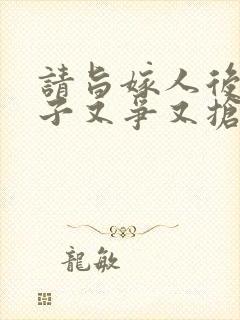 請旨嫁人後
子又爭又搶
龍敏